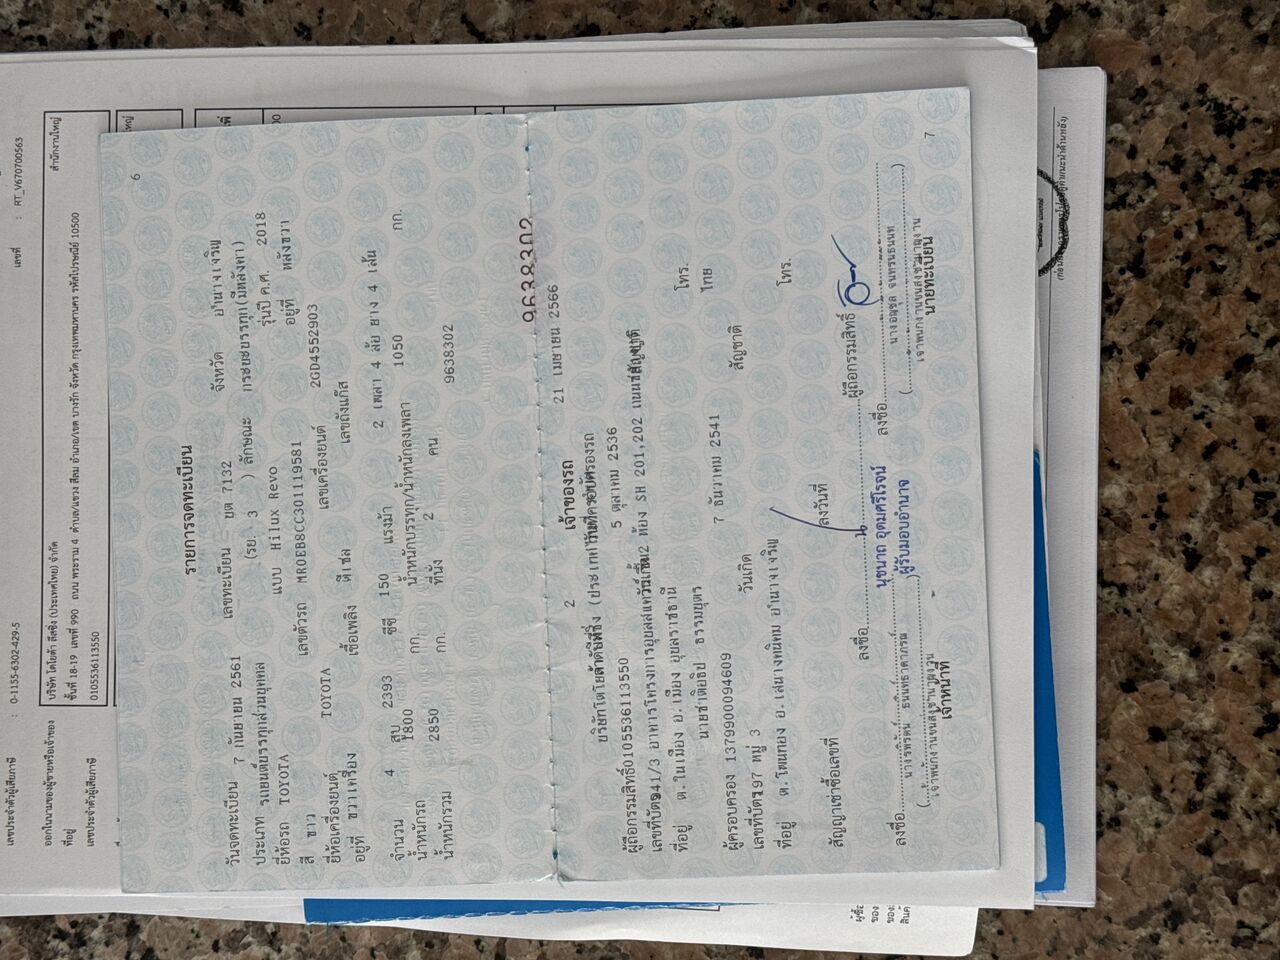 6
รายการจดทะเบียน
วันจดทะเบียน 7 กันยายน 2561 เลขทะเบียน ยต 7132 จังหวัด อำนาจเจริญ
ประเภท รถยนต์บรรทุกส่วนบุคคล (รย. 3 ) ลักษณะ กระบะบรรทุก(มีหลังคา)
ยี่ห้อรถ TOYOTA แบบ Hilux Revo รุ่นปี ค.ศ. 2018
สี ขาว เลขตัวรถ MR0EB8CC301119581 อยู่ที่ หลังขวา
ยี่ห้อเครื่องยนต์ TOYOTA เลขเครื่องยนต์ 2GD4552903
อยู่ที่ ขวาเครื่อง เชื้อเพลิง ดีเซล เลขถังแก๊ส
จำนวน 4 สูบ 2393 ซีซี 150 แรงม้า 2 เพลา 4 ล้อ ยาง 4 เส้น
น้ำหนักรถ 1800 กก. น้ำหนักบรรทุก/น้ำหนักลงเพลา 1050 กก.
น้ำหนักรวม 2850 กก. ที่นั่ง 2 คน 9638302
9638302
เจ้าของรถ
2 21 เมษายน 2566
บริษัทโตโยต้า ลีสซิ่ง (ประเทศไทย) จำกัด
ผู้ถือกรรมสิทธิ์ 0105536113550 5 ตุลาคม 2536 สัญชาติ
เลขที่บัตร 941/3 อาคารโครงการอุบลสแควร์ ชั้น 2 ห้อง SH 201,202 ถนน
ที่อยู่ ต.ในเมือง อ.เมือง อุบลราชธานี โทร.
นายชาติอธิป ธรรมบุตร ไทย
ผู้ครอบครอง 1379900094609 วันเกิด 7 ธันวาคม 2541 สัญชาติ
เลขที่บัตร 197 หมู่ 3
ที่อยู่ ต.โพนทอง อ.เสนางคนิคม อำนาจเจริญ โทร.
สัญญาเช่าซื้อเลขที่ ลงวันที่
ลงชื่อ ผู้ถือกรรมสิทธิ์
นุชนาถ อุดมศรีโรจน์
ผู้รับมอบอำนาจ
ลงชื่อ ลงชื่อ
เจ้าพนักงานขนส่งชำนาญงาน เจ้าพนักงานขนส่งชำนาญงาน
เจ้าหน้าที่ นายทะเบียน
7
เลขประจำตัวผู้เสียภาษี : 0-1155-6302-429-5 เลขที่ : RT_V670700563
ออกในนามของผู้ขายหรือเจ้าของ บริษัท โตโยต้า ลีสซิ่ง (ประเทศไทย) จำกัด สำนักงานใหญ่
ที่อยู่ ชั้น 18-19 เลขที่ 990 ถนน พระราม 4 ตำบล/แขวง สีลม อำเภอ/เขต บางรัก จังหวัด กรุงเทพมหานคร รหัสไปรษณีย์ 10500
เลขประจำตัวผู้เสียภาษี 0105536113550